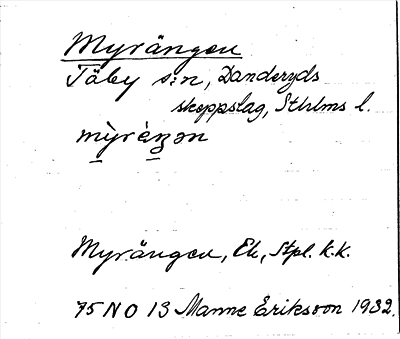 Myrängen
Täby s:n, Danderyds
skeppslag, Sthlms l.
mỳrèŋən
Myrängen, Ek, Stpl. k.k.
75 NO 13 Manne Eriksson 1932.